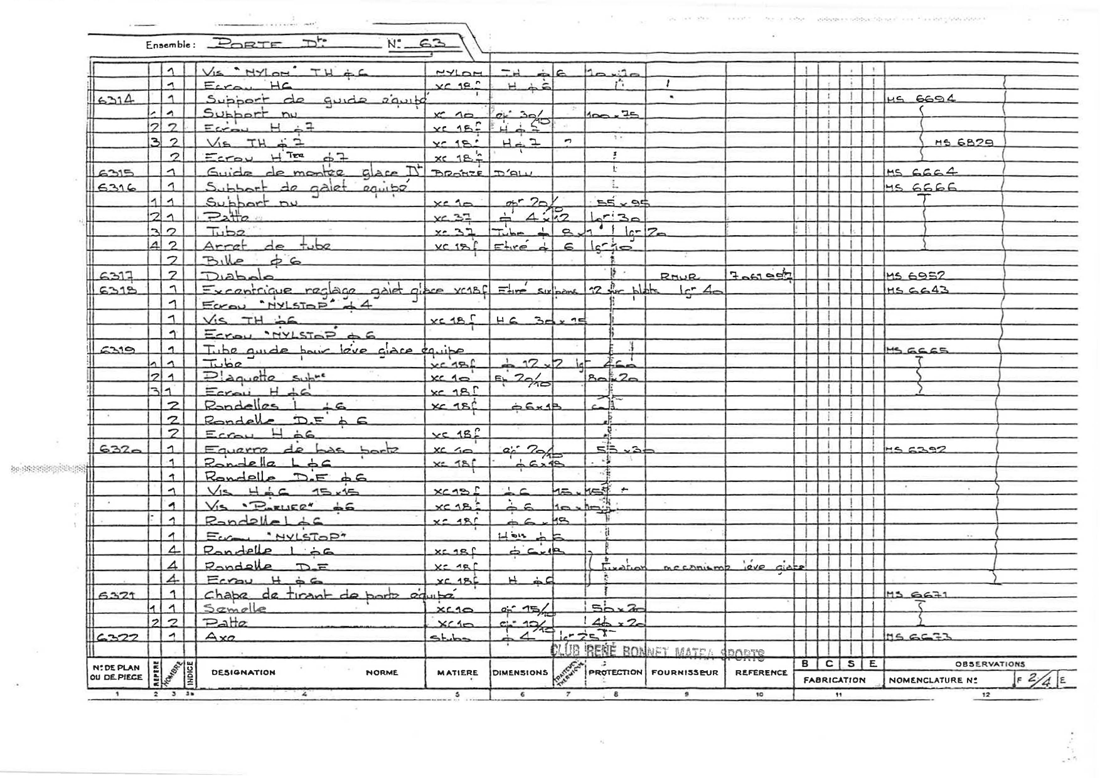 Ensemble: PORTE Dte N° 63
1 Vis "NYLON" TH φ6 NYLON TH φ 6 10x20
1 Ecrou H6 XC 18f H φ6
6314 1 Support de guide équipé MS 6694
1 1 Support nu XC 10 ép 30/10 100 x 75
2 2 Ecrou H φ7 XC 18f H φ7
3 2 Vis TH φ7 XC 18f H φ7 MS 6829
2 Ecrou φ7 XC 18f
6315 1 Guide de montée glace Dt BRONZE D'ALU MS 6664
6316 1 Support de galet équipé MS 6666
1 1 Support nu XC 10 ép 20/10 55 x 95
2 1 Patte XC 37 φ 4 x 12 lg 30
3 2 Tube XC 37 Tube φ 8 x 1 lg 20
4 2 Arret de tube XC 18f Etiré φ 6 lg 10
2 Bille φ6
6317 2 Diabolo RMUR MS 6952
6318 1 Excentrique reglage galet glace XC 18f Etiré 12 sur plats lg 40 MS 6643
1 Ecrou "NYLSTOP" φ4
1 Vis TH φ6 XC 18f H6 30 x 15
1 Ecrou "NYLSTOP" φ6
6319 1 Tube guide pour lève glace équipé MS 6665
1 1 Tube XC 18f φ 12 x 2 lg
2 1 Plaquette supre XC 10 Ep 20/10 80 x 20
3 1 Ecrou H φ6 XC 18f
2 Randelles L φ6 XC 18f φ6x18
2 Randelle D.E φ6
2 Ecrou H φ6 XC 18f
6320 1 Equerre de bas porte XC 10 ép 20/10 55 x 30 MS 6392
1 Randelle L φ6 XC 18f φ6x18
1 Randelle D.E φ6
1 Vis H φ6 15x15 XC 18f φ6 15x15
1 Vis "PARKER" φ6 XC 18f φ 6
1 Randelle L φ6 XC 18f φ6 x 18
1 Ecrou "NYLSTOP" Hbis φ6
4 Randelle L φ6 XC 18f φ6x18
4 Randelle D.E Fixation mecanisme lève glace
4 Ecrou H φ6 XC 18f H φ6
6321 1 Chape de tirant de porte équipé MS 6671
1 1 Semelle XC 10 ép 15/10 50 x 20
2 2 Patte XC 10 ép 10/10 46 x 20
6322 1 Axe Stubs φ 4 MS 6673
CLUB RENE BONNET MATRA SPORTS
N° DE PLAN OU DE PIECE REPERE NOMBRE INDICE DESIGNATION NORME MATIERE DIMENSIONS TRAITEMENT THERMIQUE PROTECTION FOURNISSEUR REFERENCE B C S E FABRICATION OBSERVATIONS NOMENCLATURE N° F 2/4 E
1 2 3 3a 4 5 6 7 8 9 10 11 12